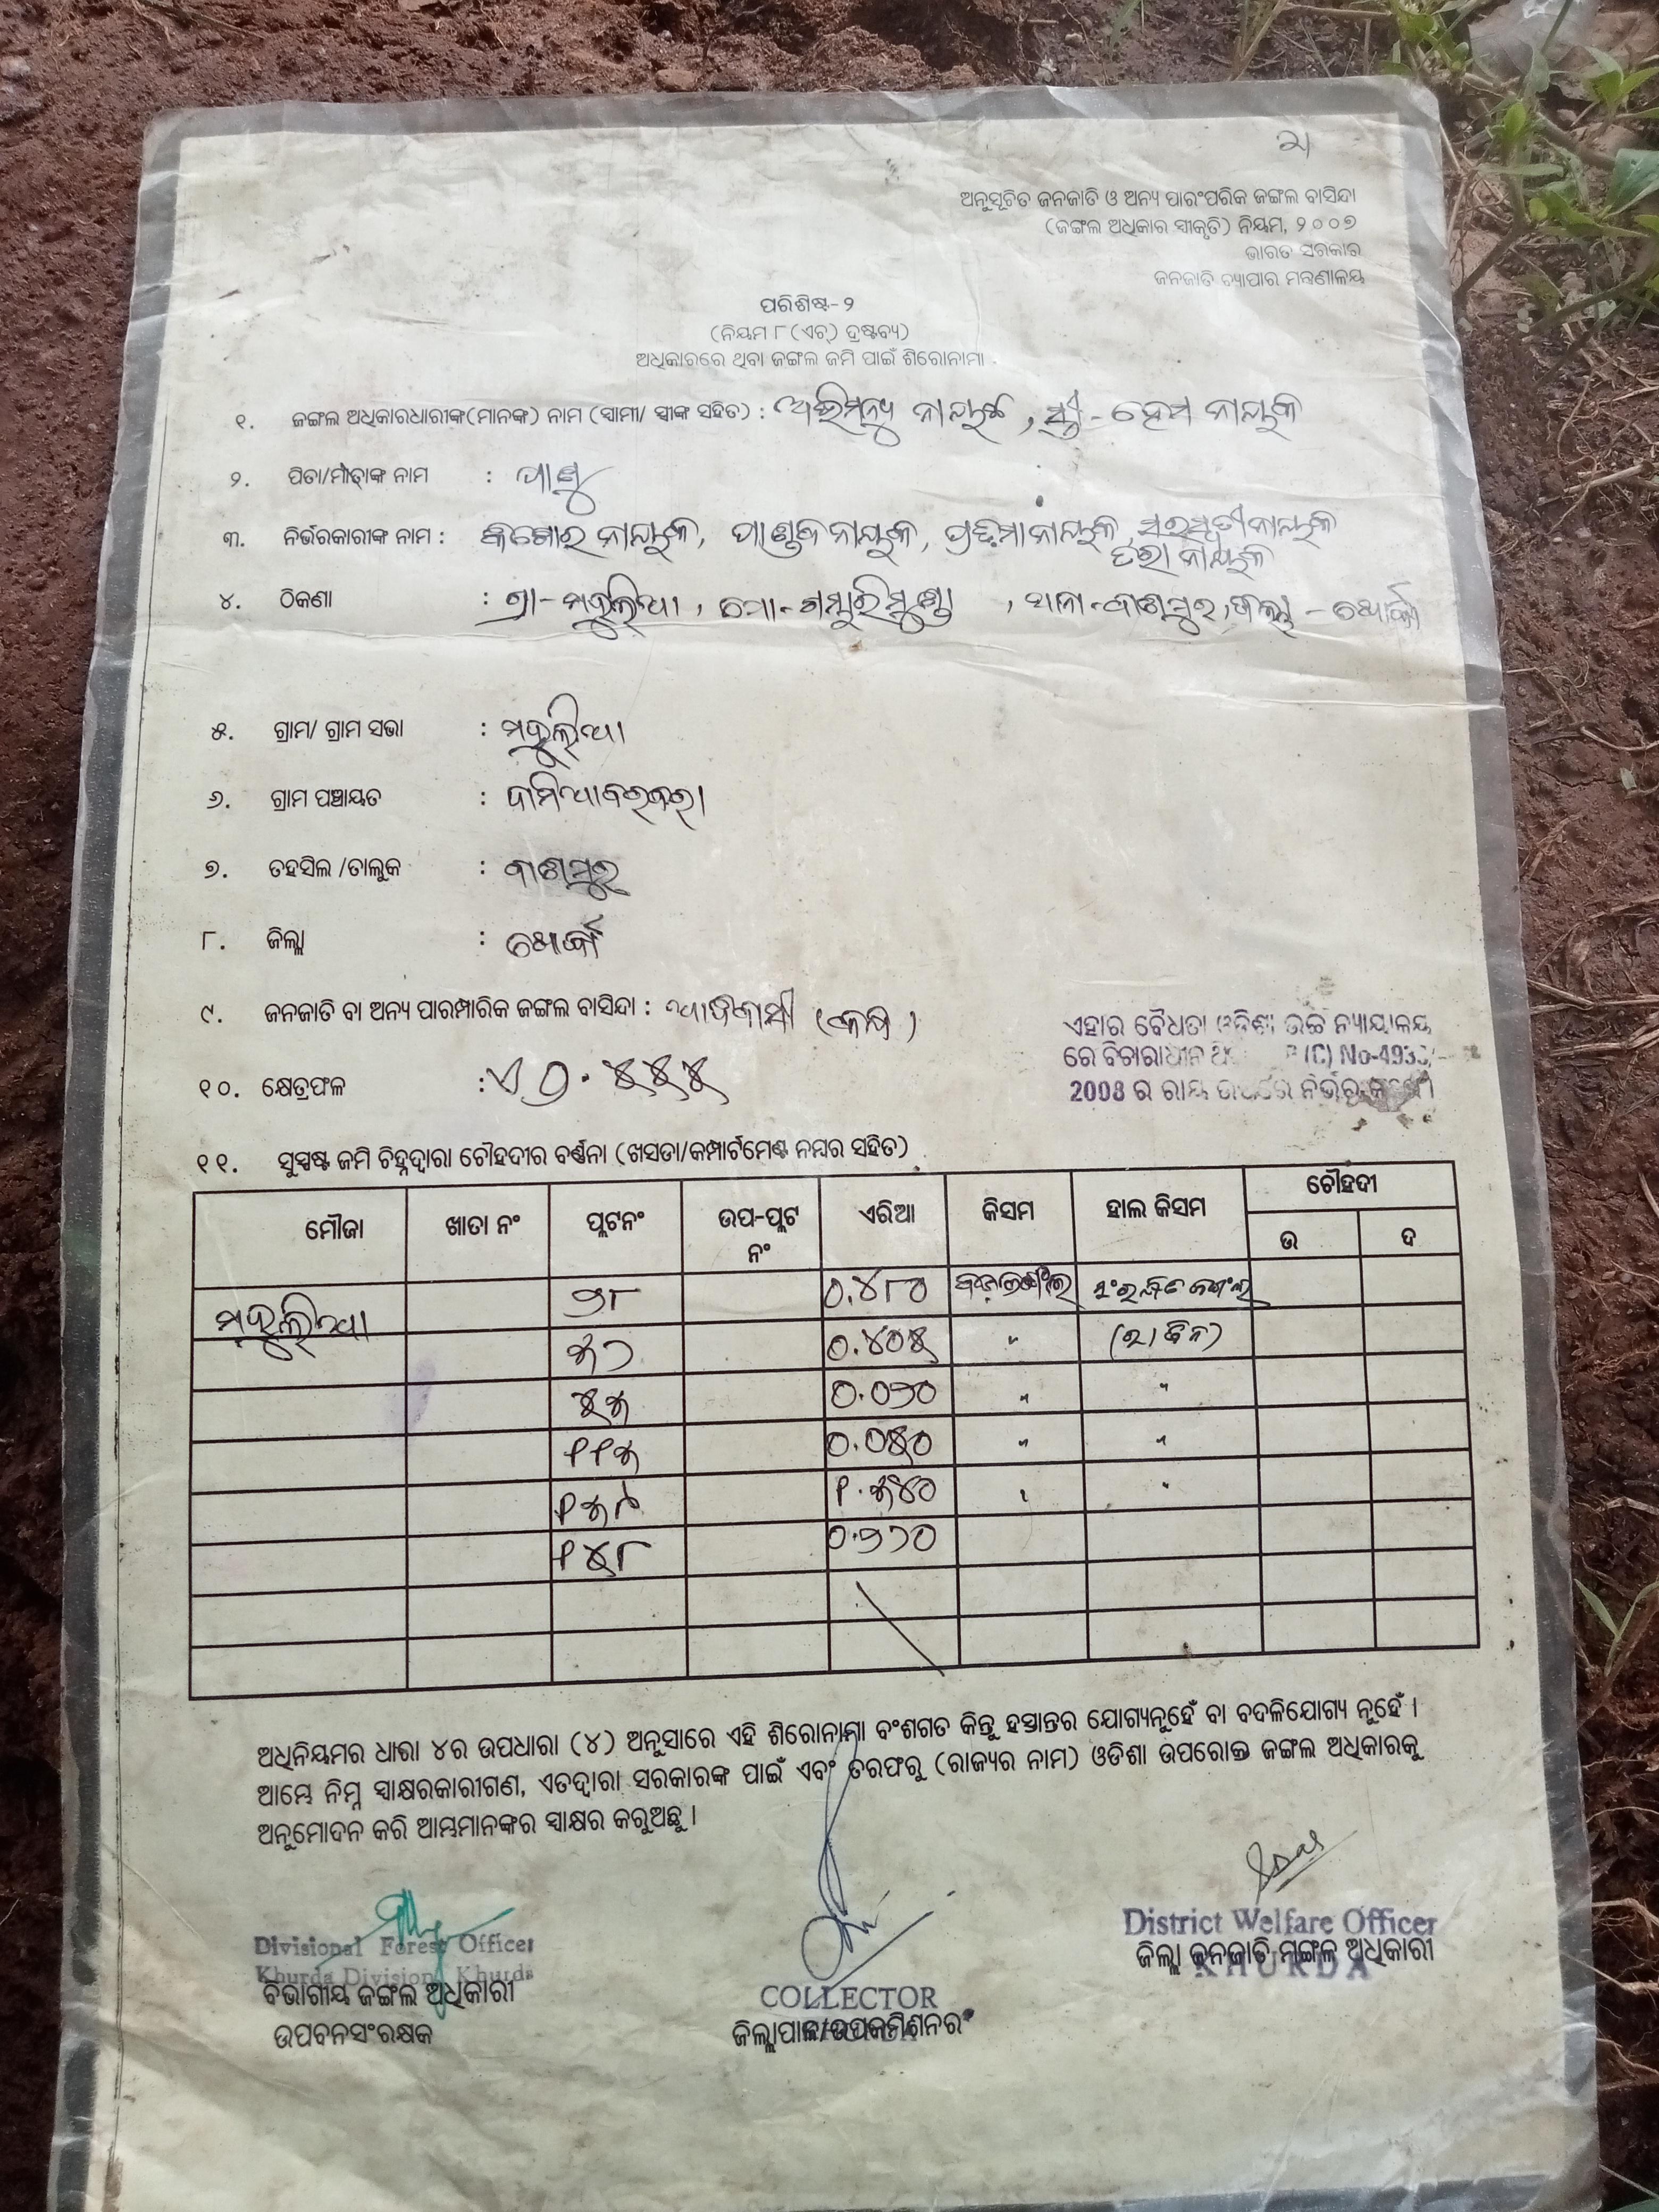 ଅନୁସୂଚିତ ଜନଜାତି ଓ ଅନ୍ୟ ପାରଂପରିକ ଜଙ୍ଗଲ ବାସିନ୍ଦା
(ଜଙ୍ଗଲ ଅଧିକାର ସ୍ୱୀକୃତି) ନିୟମ, ୨୦୦୭
ଭାରତ ସରକାର
ଜନଜାତି ବ୍ୟାପାର ମନ୍ତ୍ରଣାଳୟ
ପରିଶିଷ୍ଟ-୨
(ନିୟମ ୮ (ଏଚ୍) ଦ୍ରଷ୍ଟବ୍ୟ)
ଅଧିକାରରେ ଥିବା ଜଙ୍ଗଲ ଜମି ପାଇଁ ଶିରୋନାମା
୧. ଜଙ୍ଗଲ ଅଧିକାରଧାରୀଙ୍କ(ମାନଙ୍କ) ନାମ (ସ୍ୱାମୀ/ ସ୍ତ୍ରୀଙ୍କ ସହିତ) : ଅଭିମନ୍ୟୁ ନାୟକ, ସ୍ତ୍ରୀ - ହେମ ନାୟକ
୨. ପିତା/ମାତାଙ୍କ ନାମ : ପାଣ୍ଡୁ
୩. ନିର୍ଭରକାରୀଙ୍କ ନାମ : କିଶୋର ନାୟକ, ପାଣ୍ଡବ ନାୟକ, ନାୟକ, ସରସ୍ୱତୀ ନାୟକ
ନାୟକ
୪. ଠିକଣା : ଗ୍ରା - ମହୁଲିଆ, ପୋ - ଗମ୍ଭାରିମୁଣ୍ଡା, ଥାନା - ବାଣପୁର, ଜିଲ୍ଲା - ଖୋର୍ଦ୍ଧା
୫. ଗ୍ରାମ/ ଗ୍ରାମ ସଭା : ମହୁଲିଆ
୬. ଗ୍ରାମ ପଞ୍ଚାୟତ : ଦାମିଆବରବରା
୭. ତହସିଲ /ତାଲୁକ : ବାଣପୁର
୮. ଜିଲ୍ଲା : ଖୋର୍ଦ୍ଧା
୯. ଜନଜାତି ବା ଅନ୍ୟ ପାରମ୍ପାରିକ ଜଙ୍ଗଲ ବାସିନ୍ଦା : ଆଦିବାସୀ (କନ୍ଧ)
ଏହାର ବୈଧତା ଓଡିଶା ଉଚ୍ଚ ନ୍ୟାୟାଳୟ
ରେ ବିଚାରାଧୀନ (C) No-4933/
2008 ର ରାୟ ଉପରେ ନିର୍ଭର
୧୦. କ୍ଷେତ୍ରଫଳ : ଏ ୦.୫୫୫
୧୧. ସୁସ୍ପଷ୍ଟ ଜମି ଚିହ୍ନଦ୍ୱାରା ଚୌହଦୀର ବର୍ଣ୍ଣନା (ଖସଡା/କମ୍ପାର୍ଟମେଣ୍ଟ ନମ୍ବର ସହିତ)
ମୌଜା ଖାତା ନଂ ପ୍ଲଟନଂ ଉପ-ପ୍ଲଟ ନଂ ଏରିଆ କିସମ ହାଲ କିସମ ଚୌହଦୀ
ଉ ଦ
ମହୁଲିଆ ୨୮ ୦.୪୮୦ ସଂରକ୍ଷିତ ଜଙ୍ଗଲ
୦.୪୦୫ "
୦.୦୨୦ " "
୦.୦୫୦ " "
" "
୧୫୮
ଅଧିନିୟମର ଧାରା ୪ର ଉପଧାରା (୪) ଅନୁସାରେ ଏହି ଶିରୋନାମା ବଂଶଗତ କିନ୍ତୁ ହସ୍ତାନ୍ତର ଯୋଗ୍ୟନୁହେଁ ବା ବଦଳିଯୋଗ୍ୟ ନୁହେଁ ।
ଆମ୍ଭେ ନିମ୍ନ ସ୍ୱାକ୍ଷରକାରୀଗଣ, ଏତଦ୍ୱାରା ସରକାରଙ୍କ ପାଇଁ ଏବଂ ତରଫରୁ (ରାଜ୍ୟର ନାମ) ଓଡିଶା ଉପରୋକ୍ତ ଜଙ୍ଗଲ ଅଧିକାରକୁ
ଅନୁମୋଦନ କରି ଆମ୍ଭମାନଙ୍କର ସ୍ୱାକ୍ଷର କରୁଅଛୁ ।
Divisional Forest Officer
Khurda Division, Khurda
ବିଭାଗୀୟ ଜଙ୍ଗଲ ଅଧିକାରୀ
ଉପବନସଂରକ୍ଷକ
COLLECTOR
ଜିଲ୍ଲାପାଳ/ଉପକମିଶନର
District Welfare Officer
KHURDA
ଜିଲ୍ଲା ଜନଜାତି ମଙ୍ଗଳ ଅଧିକାରୀ